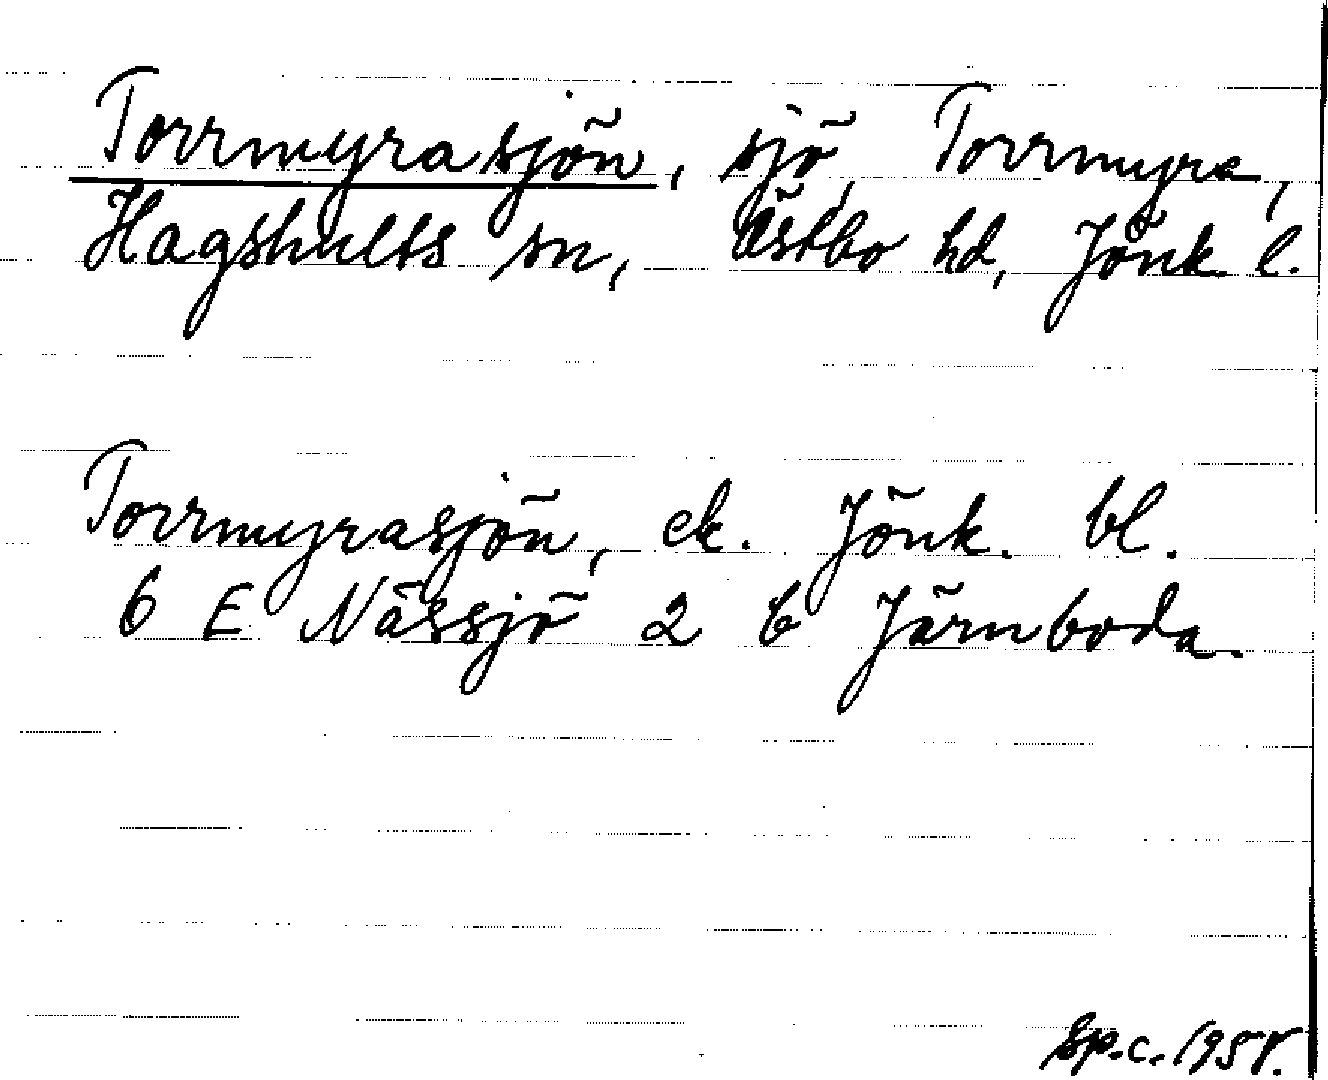 Torrmyrasjön, sjö, Torrmyra,
Hagshults sn, Östbo hd, Jönk l.
Torrmyrasjön, ek. Jönk. bl.
6 E Nässjö 2 b Järnboda.
Sp.c. 1958.